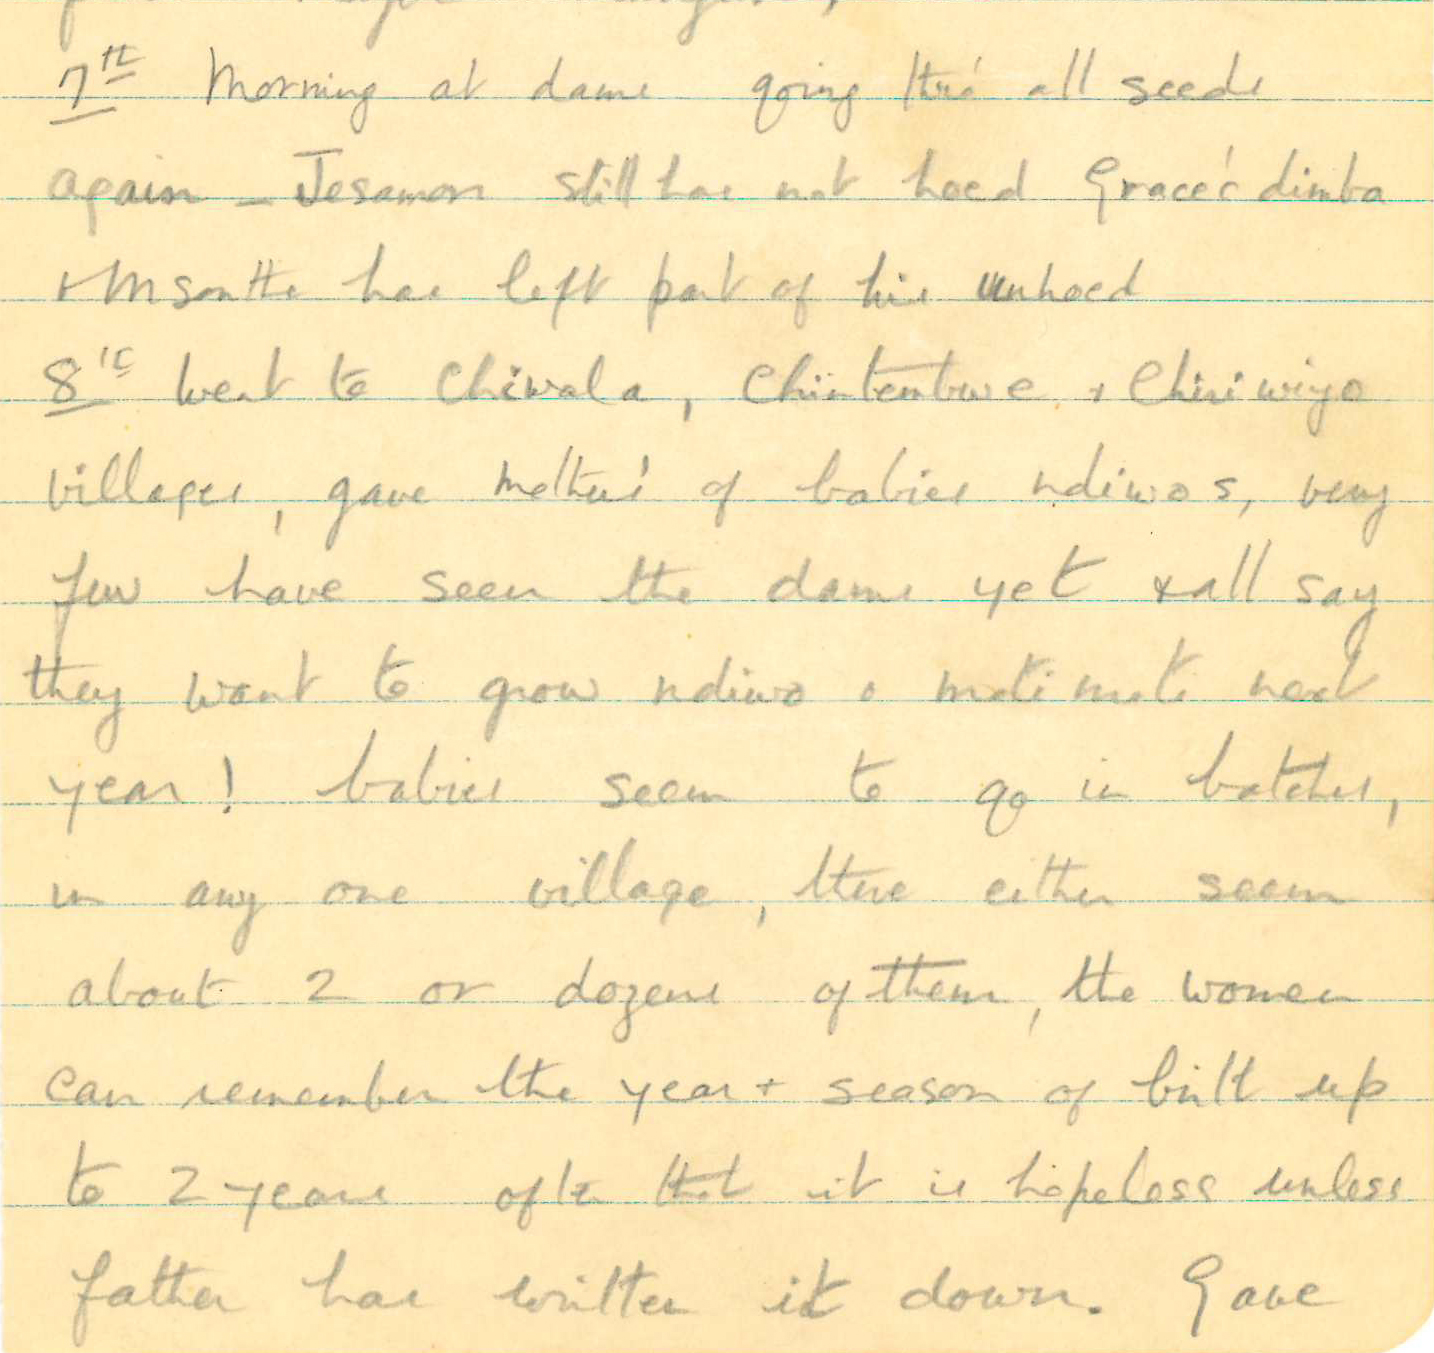 7th Morning at dams going thro' all seeds
again - Jesamon still has not hoed Grace's dimba
+ Msonthe has left part of his unhoed
8th Went to Chiwala, Chintembwe + Chiriwiyo
villages, gave mothers of babies ndiwos, very
few have seen the dams yet & all say
they want to grow ndiwo + matimati next
year! babies seem to go in batches,
in any one village, there either seem
about 2 or dozens of them, the women
can remember the year + season of birth up
to 2 years after that it is hopeless unless
father has written it down. Gave